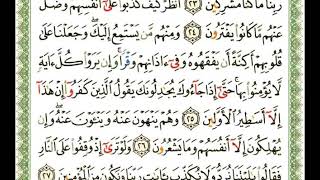 رَبِّنَا مَا كُنَّا مُشْرِكِينَ ٢٣ ٱنظُرْ كَيْفَ كَذَبُوا۟ عَلَىٰٓ أَنفُسِهِمْ وَضَلَّ
عَنْهُم مَّا كَانُوا۟ يَفْتَرُونَ ٢٤ وَمِنْهُم مَّن يَسْتَمِعُ إِلَيْكَ وَجَعَلْنَا عَلَىٰ
قُلُوبِهِمْ أَكِنَّةً أَن يَفْقَهُوهُ وَفِىٓ ءَاذَانِهِمْ وَقْرًا وَإِن يَرَوْا۟ كُلَّ ءَايَةٍ
لَّا يُؤْمِنُوا۟ بِهَا حَتَّىٰٓ إِذَا جَآءُوكَ يُجَٰدِلُونَكَ يَقُولُ ٱلَّذِينَ كَفَرُوٓا۟ إِنْ هَٰذَآ
إِلَّآ أَسَٰطِيرُ ٱلْأَوَّلِينَ ٢٥ وَهُمْ يَنْهَوْنَ عَنْهُ وَيَنْـَٔوْنَ عَنْهُ وَإِن
يُهْلِكُونَ إِلَّآ أَنفُسَهُمْ وَمَا يَشْعُرُونَ ٢٦ وَلَوْ تَرَىٰٓ إِذْ وُقِفُوا۟ عَلَى ٱلنَّارِ
فَقَالُوا۟ يَٰلَيْتَنَا نُرَدُّ وَلَا نُكَذِّبُ بِـَٔايَٰتِ رَبِّنَا وَنَكُونُ مِنَ ٱلْمُؤْمِنِينَ ٢٧